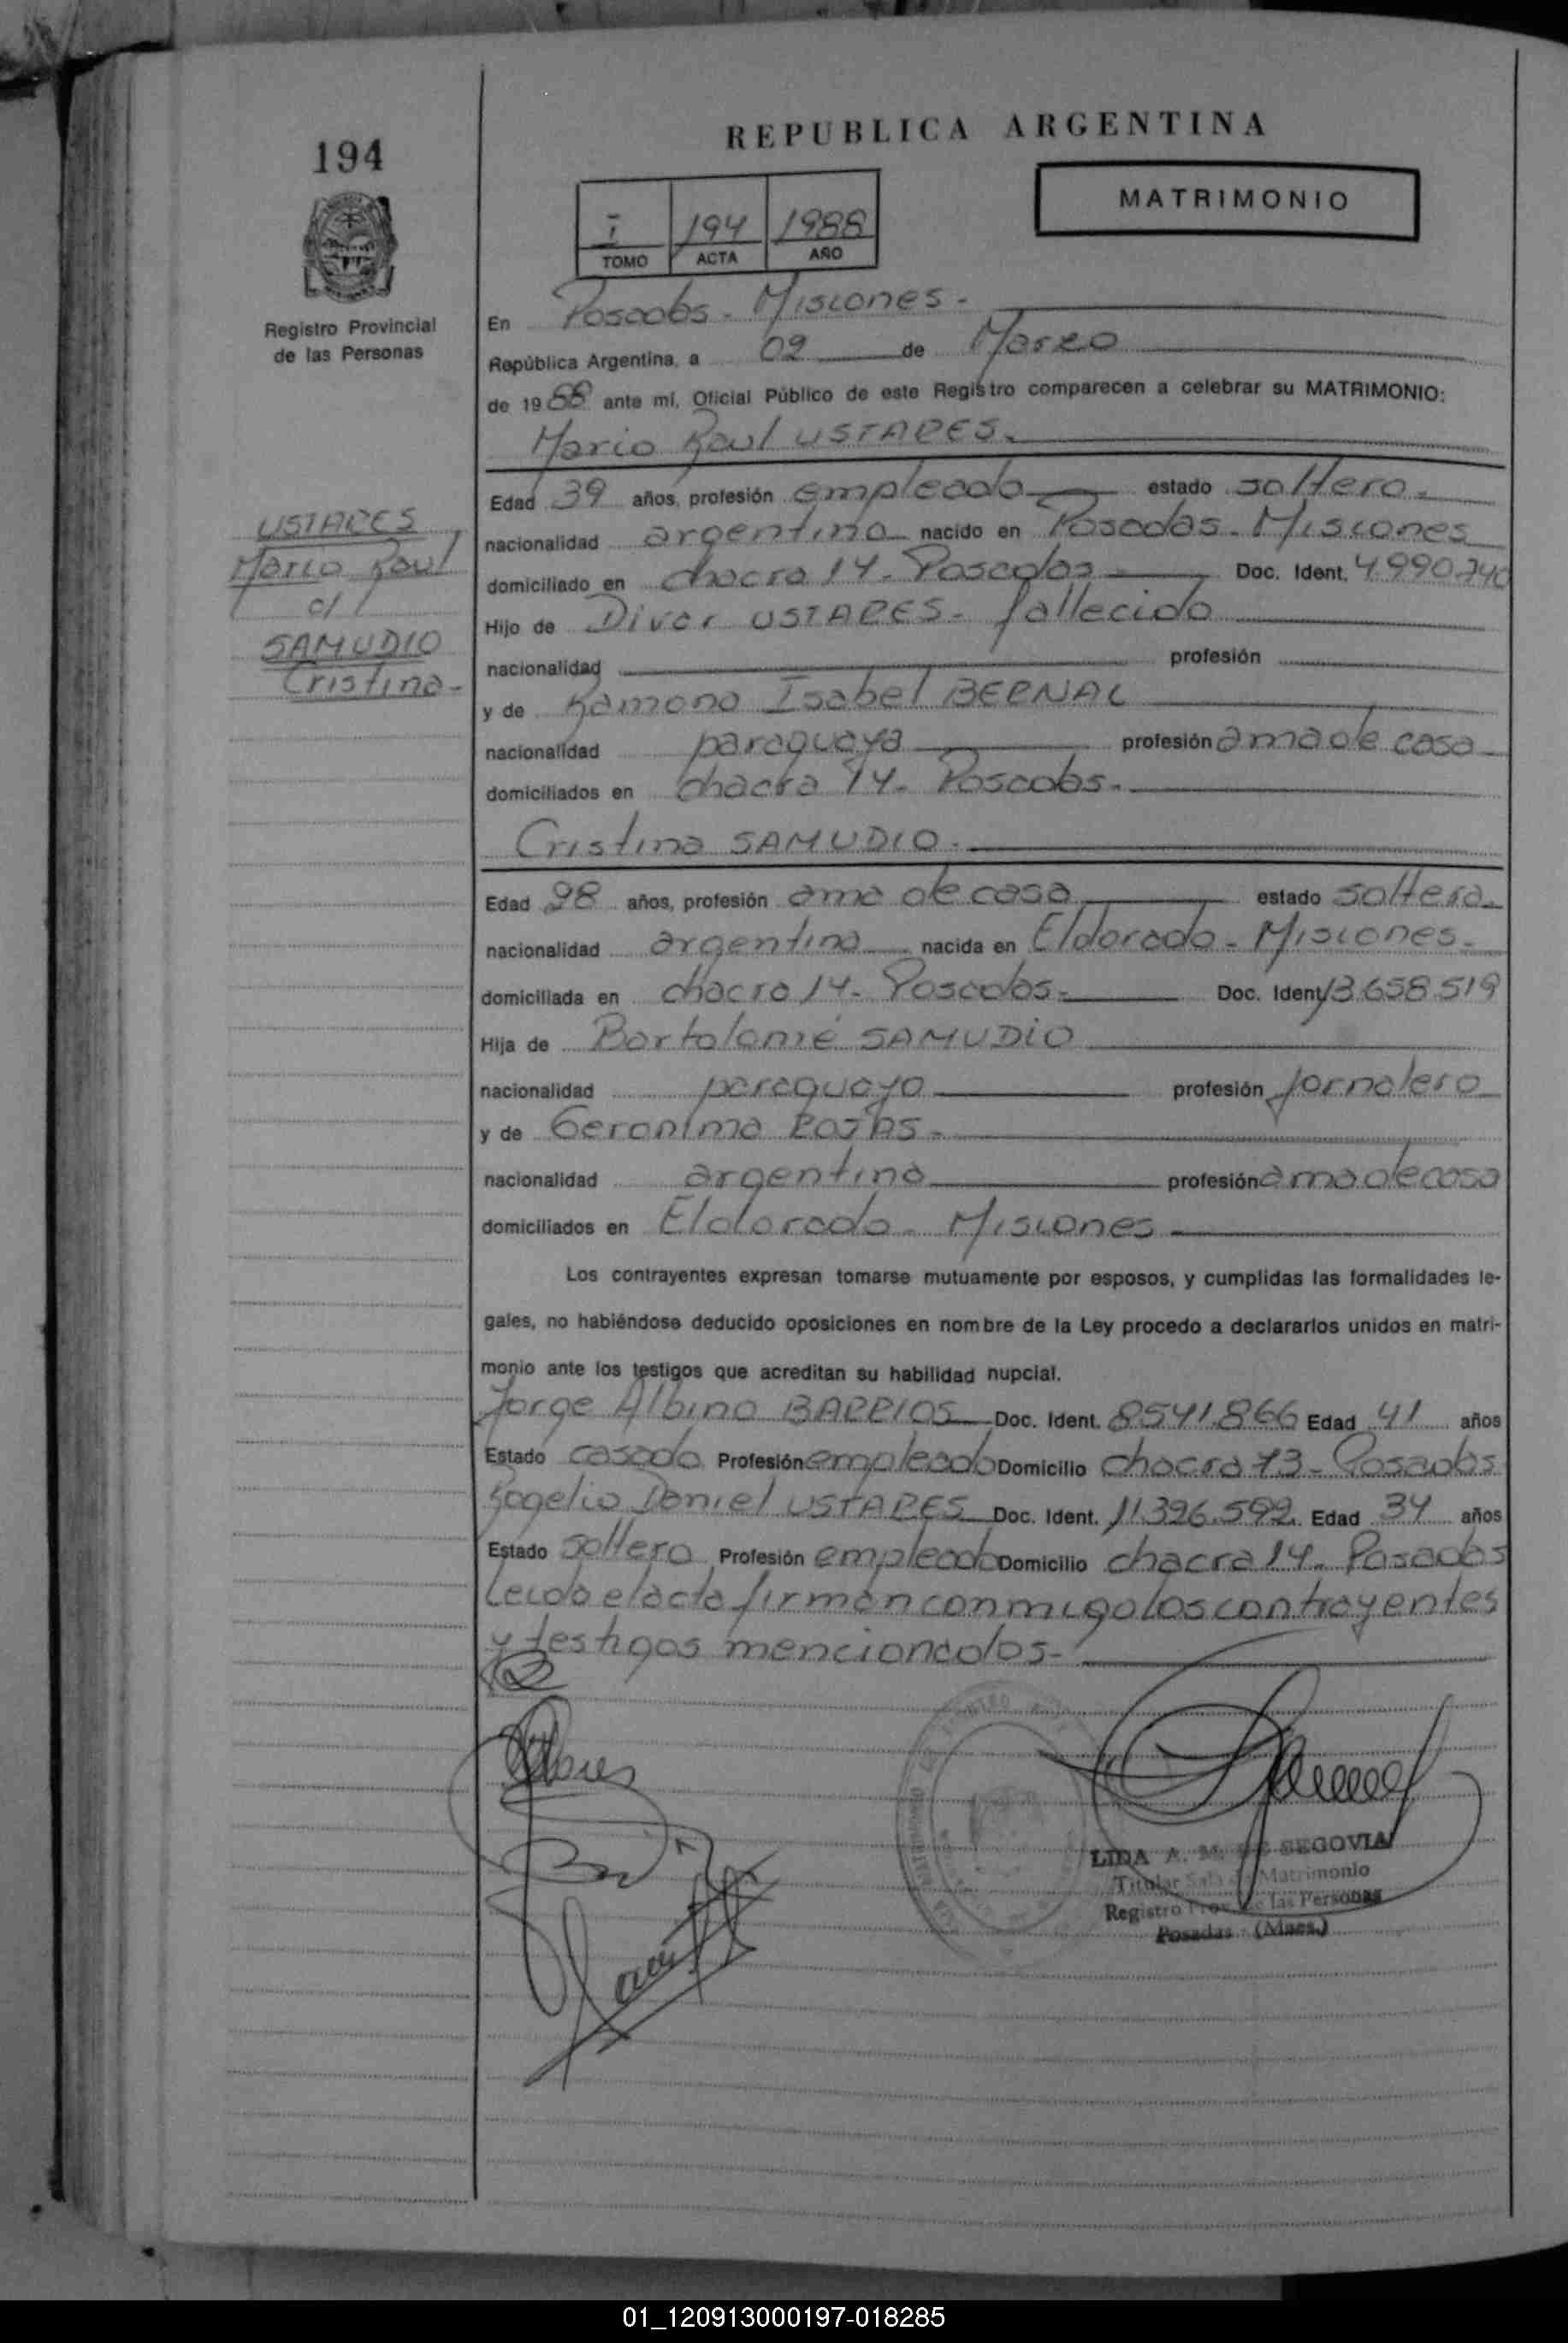 194
REPUBLICA ARGENTINA
MATRIMONIO
I 194 1988
TOMO ACTA AÑO
Registro Provincial
de las Personas
En Posadas - Misiones -
República Argentina, a 02 de Marzo
de 1988 ante mí, Oficial Público de este Registro comparecen a celebrar su MATRIMONIO:
Mario Raul USTARES.
Edad 39 años, profesión empleado estado soltero.
nacionalidad argentina nacido en Posadas - Misiones
domiciliado en chacra 14 - Posadas Doc. Ident. 4.990.740
Hijo de USTARES - fallecido
nacionalidad profesión
y de Ramona Isabel BERNAL
nacionalidad paraguaya profesión ama de casa
domiciliados en chacra 14 - Posadas -
USTARES
Mario Raul
c/
SAMUDIO
Cristina -
Cristina SAMUDIO -
Edad 28 años, profesión ama de casa estado soltera.
nacionalidad argentina nacida en Eldorado - Misiones -
domiciliada en chacra 14 - Posadas - Doc. Ident. 13.658.519
Hija de Bartolomé SAMUDIO
nacionalidad paraguayo profesión jornalero
y de Geronima ROJAS -
nacionalidad argentina profesión ama de casa
domiciliados en Eldorado - Misiones
Los contrayentes expresan tomarse mutuamente por esposos, y cumplidas las formalidades le-
gales, no habiéndose deducido oposiciones en nombre de la Ley procedo a declararlos unidos en matri-
monio ante los testigos que acreditan su habilidad nupcial.
Jorge Albino BARRIOS Doc. Ident. 8541.866 Edad 41 años
Estado casado Profesión empleado Domicilio chacra 73 - Posadas
Rogelio Daniel USTARES Doc. Ident. 11.396.592 Edad 34 años
Estado soltero Profesión empleado Domicilio chacra 14 - Posadas
Leido el acta firman conmigo los contrayentes
y testigos mencionados -
LIDA A. M. DE SEGOVIA
Titular Sala de Matrimonio
Registro Prov. de las Personas
Posadas (Mnes.)
01_120913000197-018285